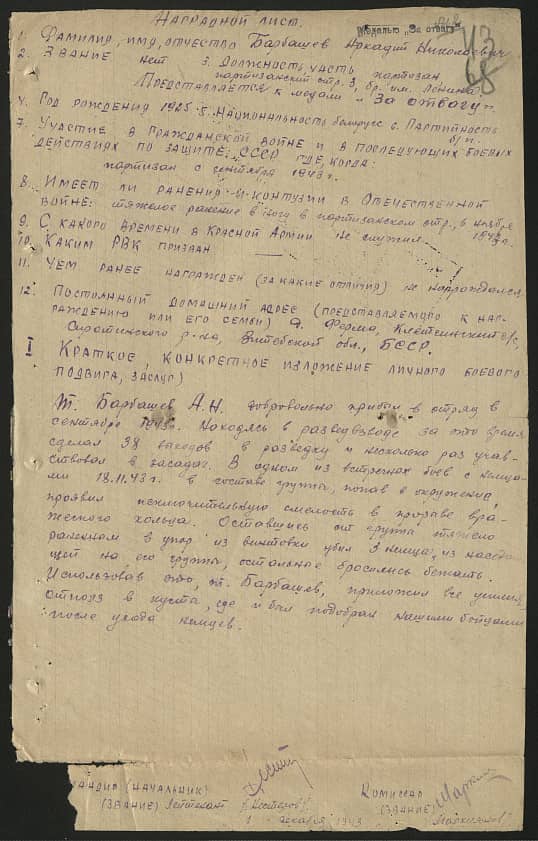 Наградной лист.
Медалью „За отвагу"
43
68
1. Фамилия, имя, отчество Барбашев Аркадий Николаевич
2. Звание нет 3. Должность, часть партизан
партизанский отр. 3, бр. им. Ленина
Представляется к медали „За отвагу".
4. Год рождения 1925 5. Национальность белорус 6. Партийность
б/п.
7. Участие в гражданской войне и в последующих боевых
действиях по защите СССР где, когда:
партизан с сентября 1943 г.
8. Имеет ли ранения и контузии в Отечественной
войне: тяжелое ранение в ногу в партизанском отр., в ноябре
1943 г.
9. С какого времени в Красной Армии не служил
10. Каким РВК призван —
11. Чем ранее награжден (за какие отличия) не награждался
12. Постоянный домашний адрес (представляемого к наг-
раждению или его семьи) д. Ферма, с/с,
Сиротинского р-на, Витебской обл., БССР.
I Краткое, конкретное изложение личного боевого
подвига, заслуг)
Т. Барбашев А.Н. добровольно прибыл в отряд в
сентябре 1943 г. Находясь в разведвзводе за это время
сделал 38 выходов в разведку и несколько раз учав-
ствовал в засадах. В одном из встречных боев с немца-
ми 18.11.43 г. в составе группы, попав в окружение,
проявил исключительную смелость в прорыве вра-
жеского кольца. Оставшись от группы тяжело
раненным в упор из винтовки убил 3 немцев, из наседа-
щей на его группы, остальные бросились бежать.
Использовав это, т. Барбашев, приложил все усилия,
отполз в кусты, где и был подобран нашими бойцами
после ухода немцев.
андир (начальник) Комиссар
(звание) Лейтенант /Нестеров/ (звание)
1 декабря 1943